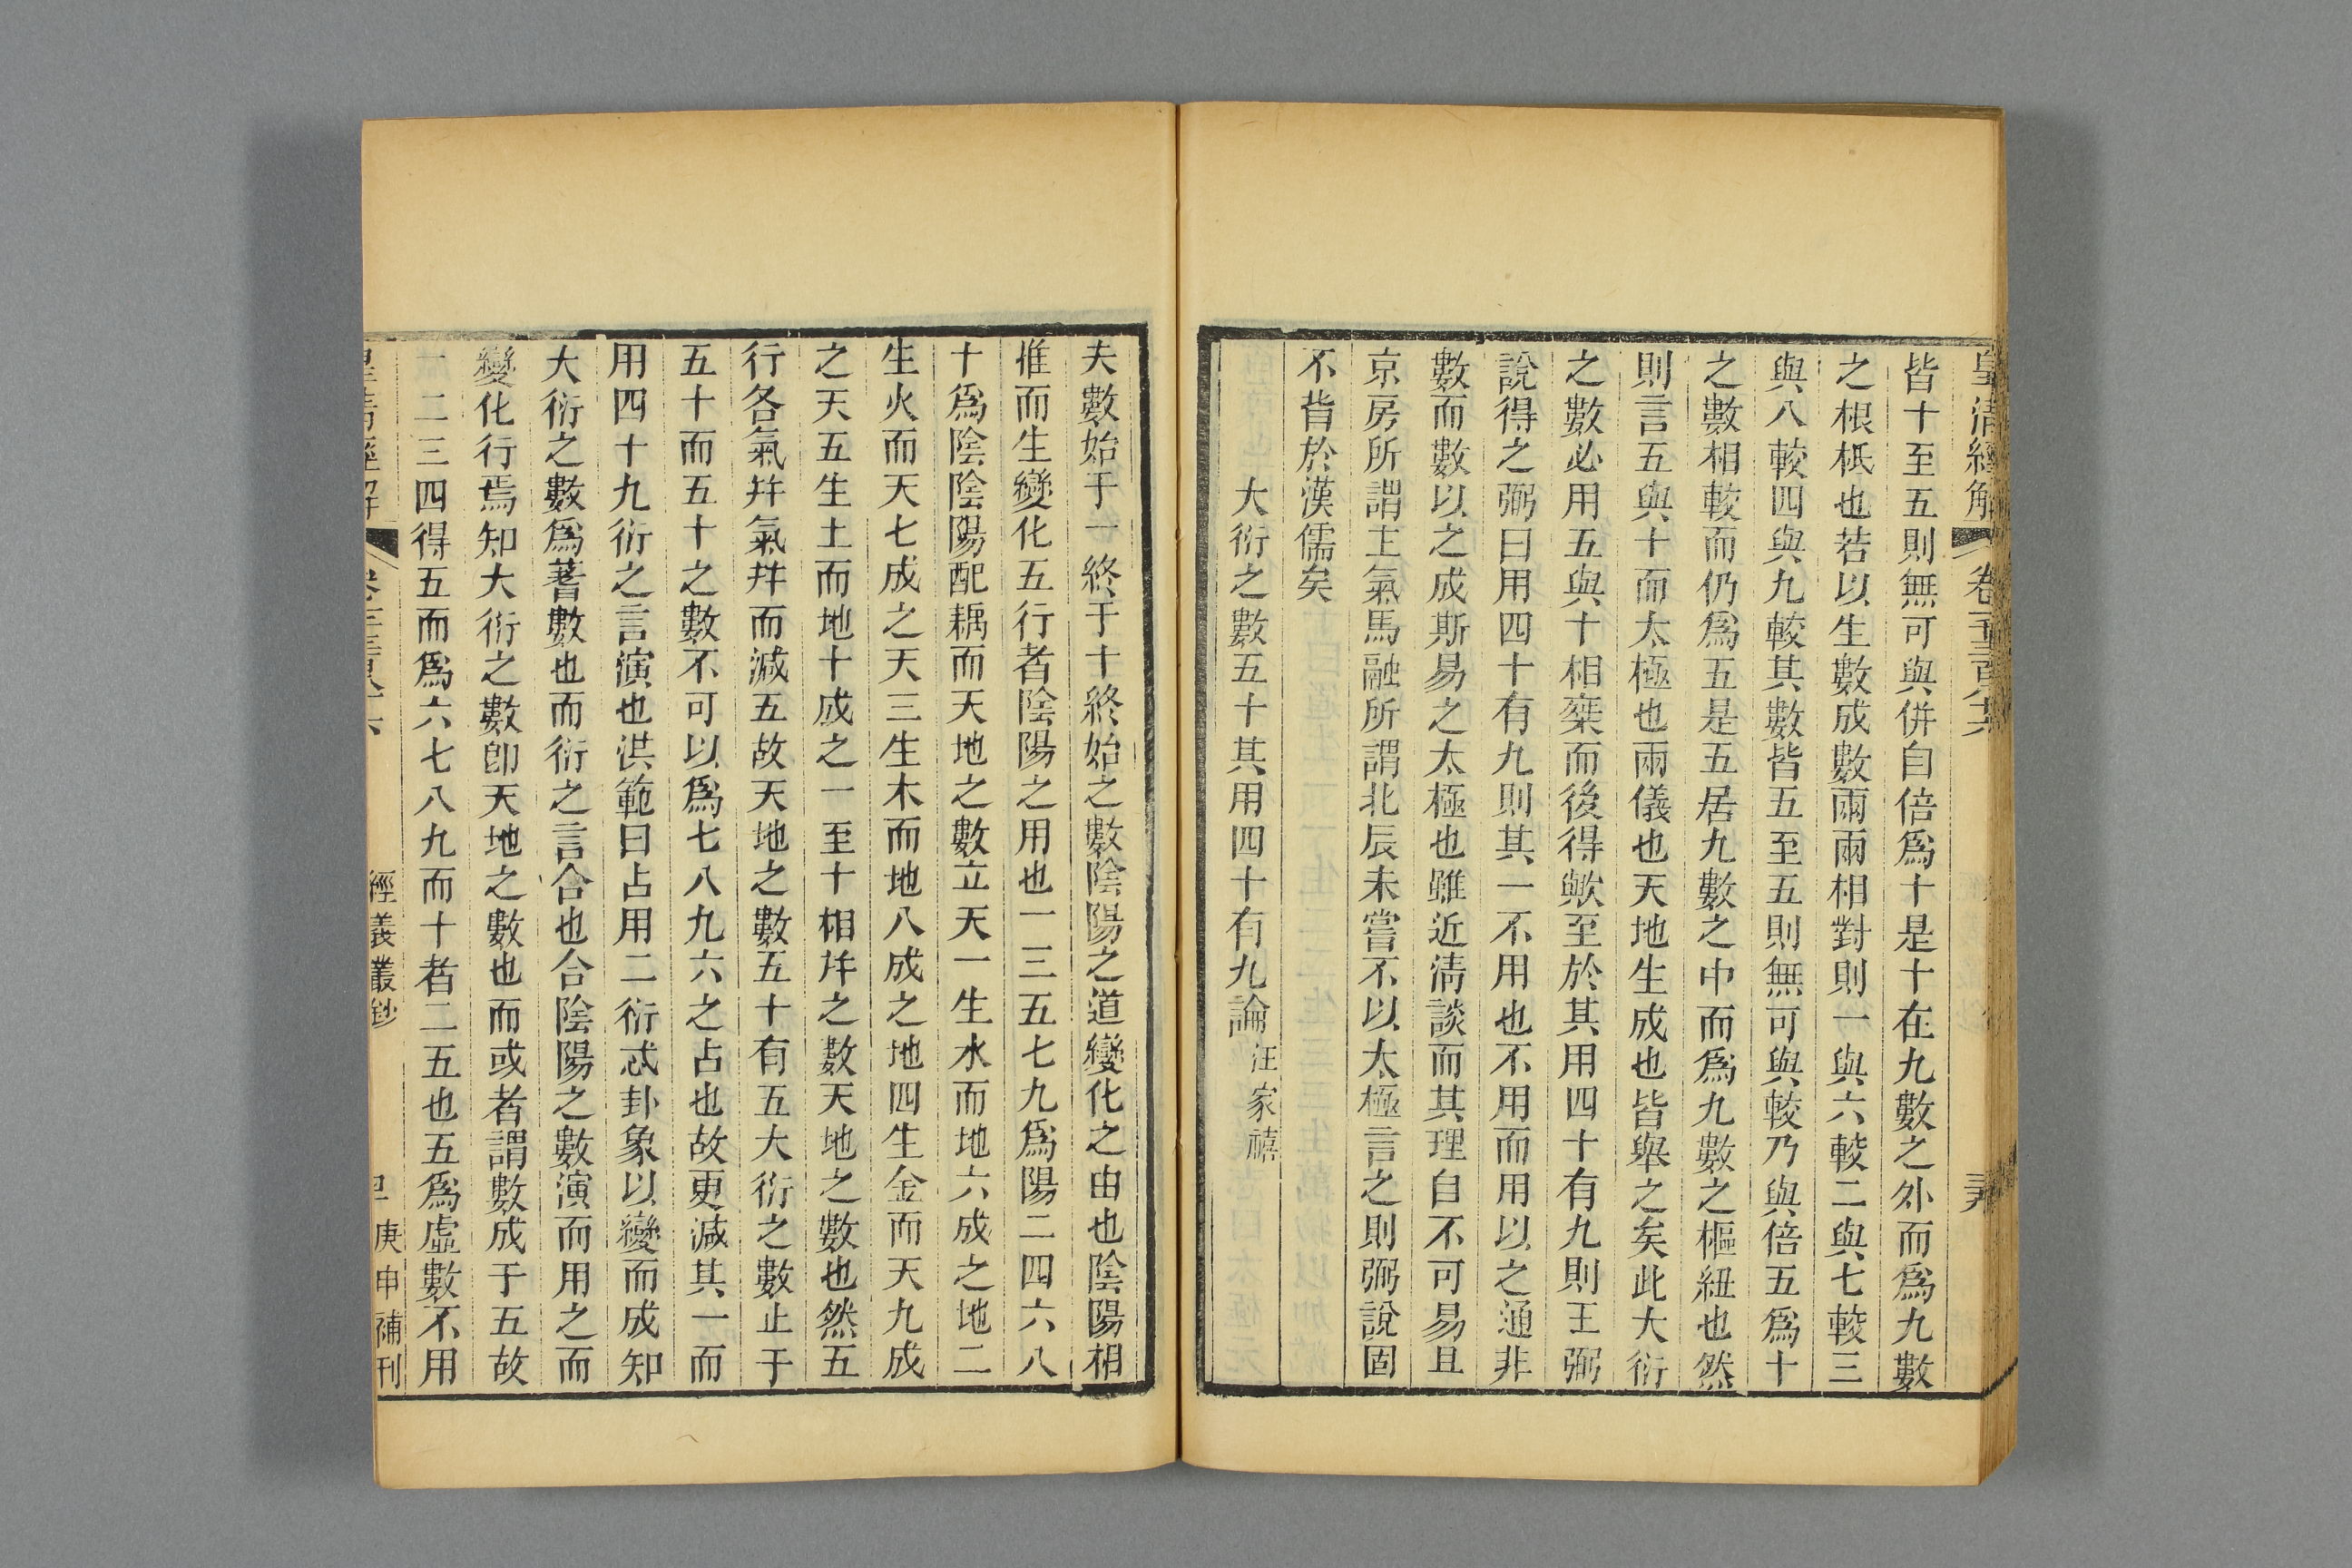 皇清經解 卷
皆十至五則無可與併自倍爲十是十在九數之外而爲九數
之根柢也若以生數成數兩兩相對則一與六較二與七較三
與八較四與九較其數皆五至五則無可與較乃與倍五爲十
之數相較而仍爲五是五居九數之中而爲九數之樞紐也然
則言五與十而太極也兩儀也天地生成也皆舉之矣此大衍
之數必用五與十相椉而後得歟至於其用四十有九則王弼
說得之弼曰用四十有九則其一不用也不用而用以之通非
數而數以之成斯易之太極也雖近淸談而其理自不可易且
京房所謂主氣馬融所謂北辰未嘗不以太極言之則弼說固
不背於漢儒矣
大衍之數五十其用四十有九論 汪家禧
夫數始于一終于十終始之數陰陽之道變化之由也陰陽相
推而生變化五行者陰陽之用也一三五七九爲陽二四六八
十爲陰陰陽配耦而天地之數立天一生水而地六成之地二
生火而天七成之天三生木而地八成之地四生金而天九成
之天五生土而地十成之一至十相幷之數天地之數也然五
行各氣幷氣幷而減五故天地之數五十有五大衍之數止于
五十而五十之數不可以爲七八九六之占也故更減其一而
用四十九衍之言演也洪範曰占用二衍忒卦象以變而成知
大衍之數爲蓍數也而衍之言合也合陰陽之數演而用之而
變化行焉知大衍之數卽天地之數也而或者謂數成于五故
一二三四得五而爲六七八九而十者二五也五爲虛數不用
經義叢鈔
庚申補刊